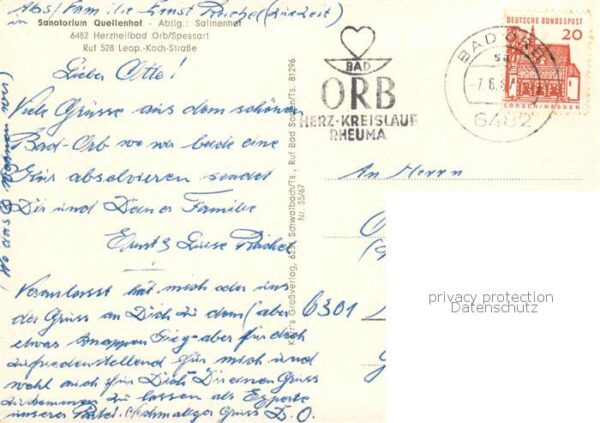 Abs/Familie Ernst
in
Sanatorium Quellenhof - Abtlg.: Salinenhof
6482 Herzheilbad Orb/Spessart
Ruf 528 Leop.-Koch-Straße
Lieber Otto!
Viele Grüsse aus dem schönen
Bad-Orb wo wir beide eine
Kur absolvieren sendet
Dir und Deiner Familie
Ernst & Luise
Veranlasst hat mich oder uns
der Gruss an Dich zu dem (aber
etwas knappen Sieg-aber für doch
zufriedenstellend für mich und
wohl auch für Dich Diesen Gruss
zukommen zu lassen als Experte
unserer Gruss D. O.
BAD
ORB
HERZ-KREISLAUF
RHEUMA
BAD ORB
-7.6.
6482
DEUTSCHE BUNDESPOST
20
LORSCH/HESSEN
Großverlag, Schwalbach/Ts., Ruf Bad Soden/Ts. 81296
Nr. 35/67
An Herrn
6301
privacy protection
Datenschutz